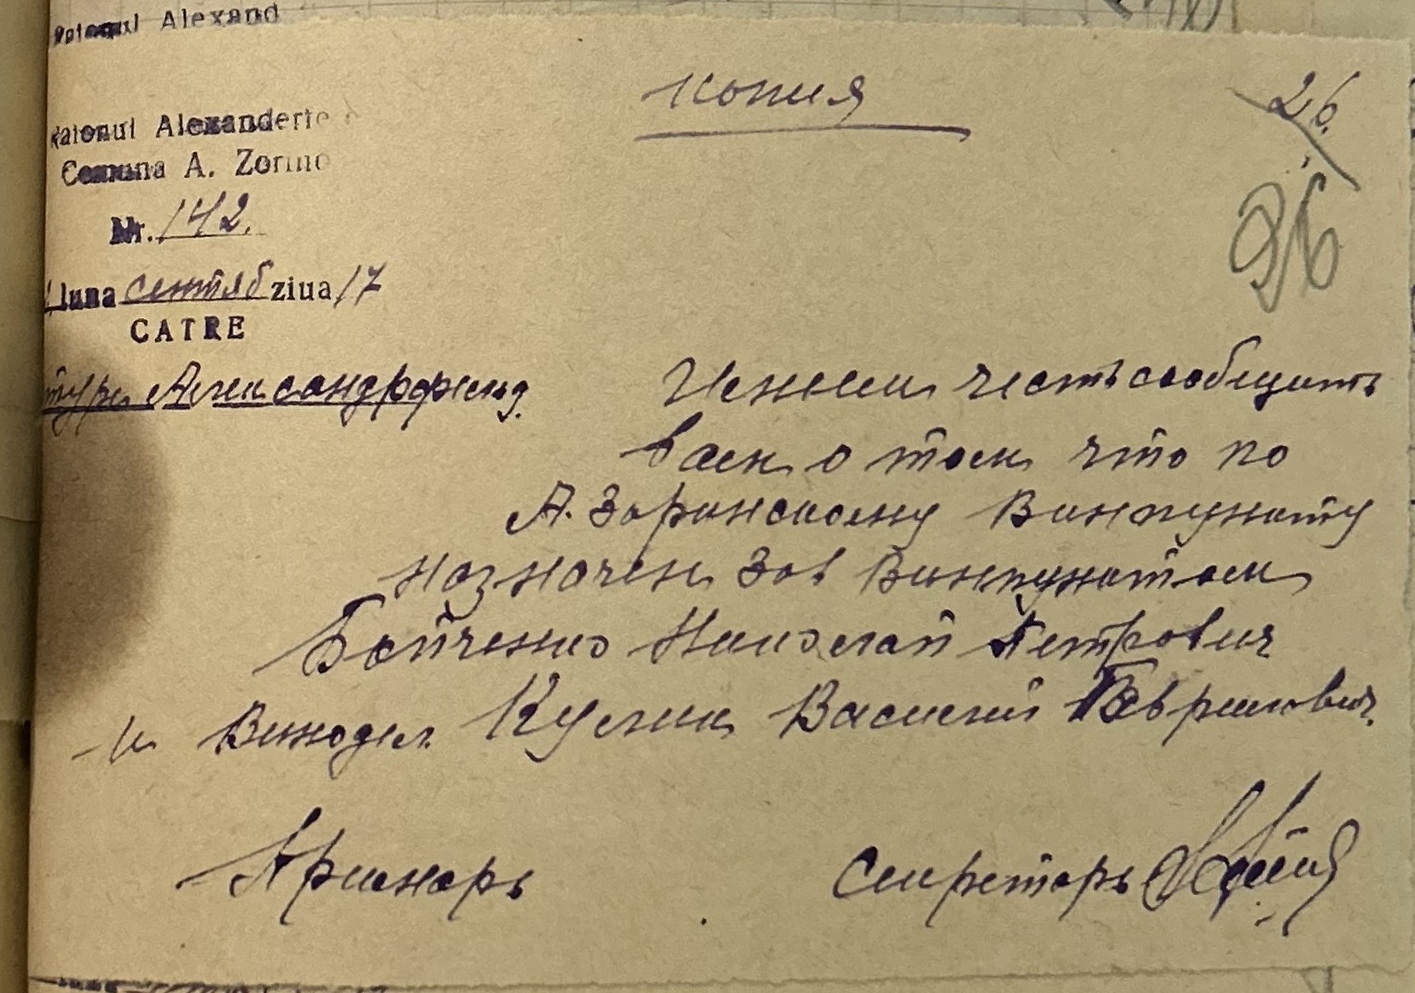 Raionul Alexand
копия
26.
96
Raionul Alexanderfe
Comuna A. Zorino
Nr. 142.
luna сентяб ziua 17
CATRE
туры Александрфельд.
Имеем честь сообщить
вам о том что по
А. Зоринскому Винпункту
назначен Зав Винпунктом
Бойченко Николай Петрович
и Винодел Кулик Василий Гаврилович.
Примарь
Секретарь